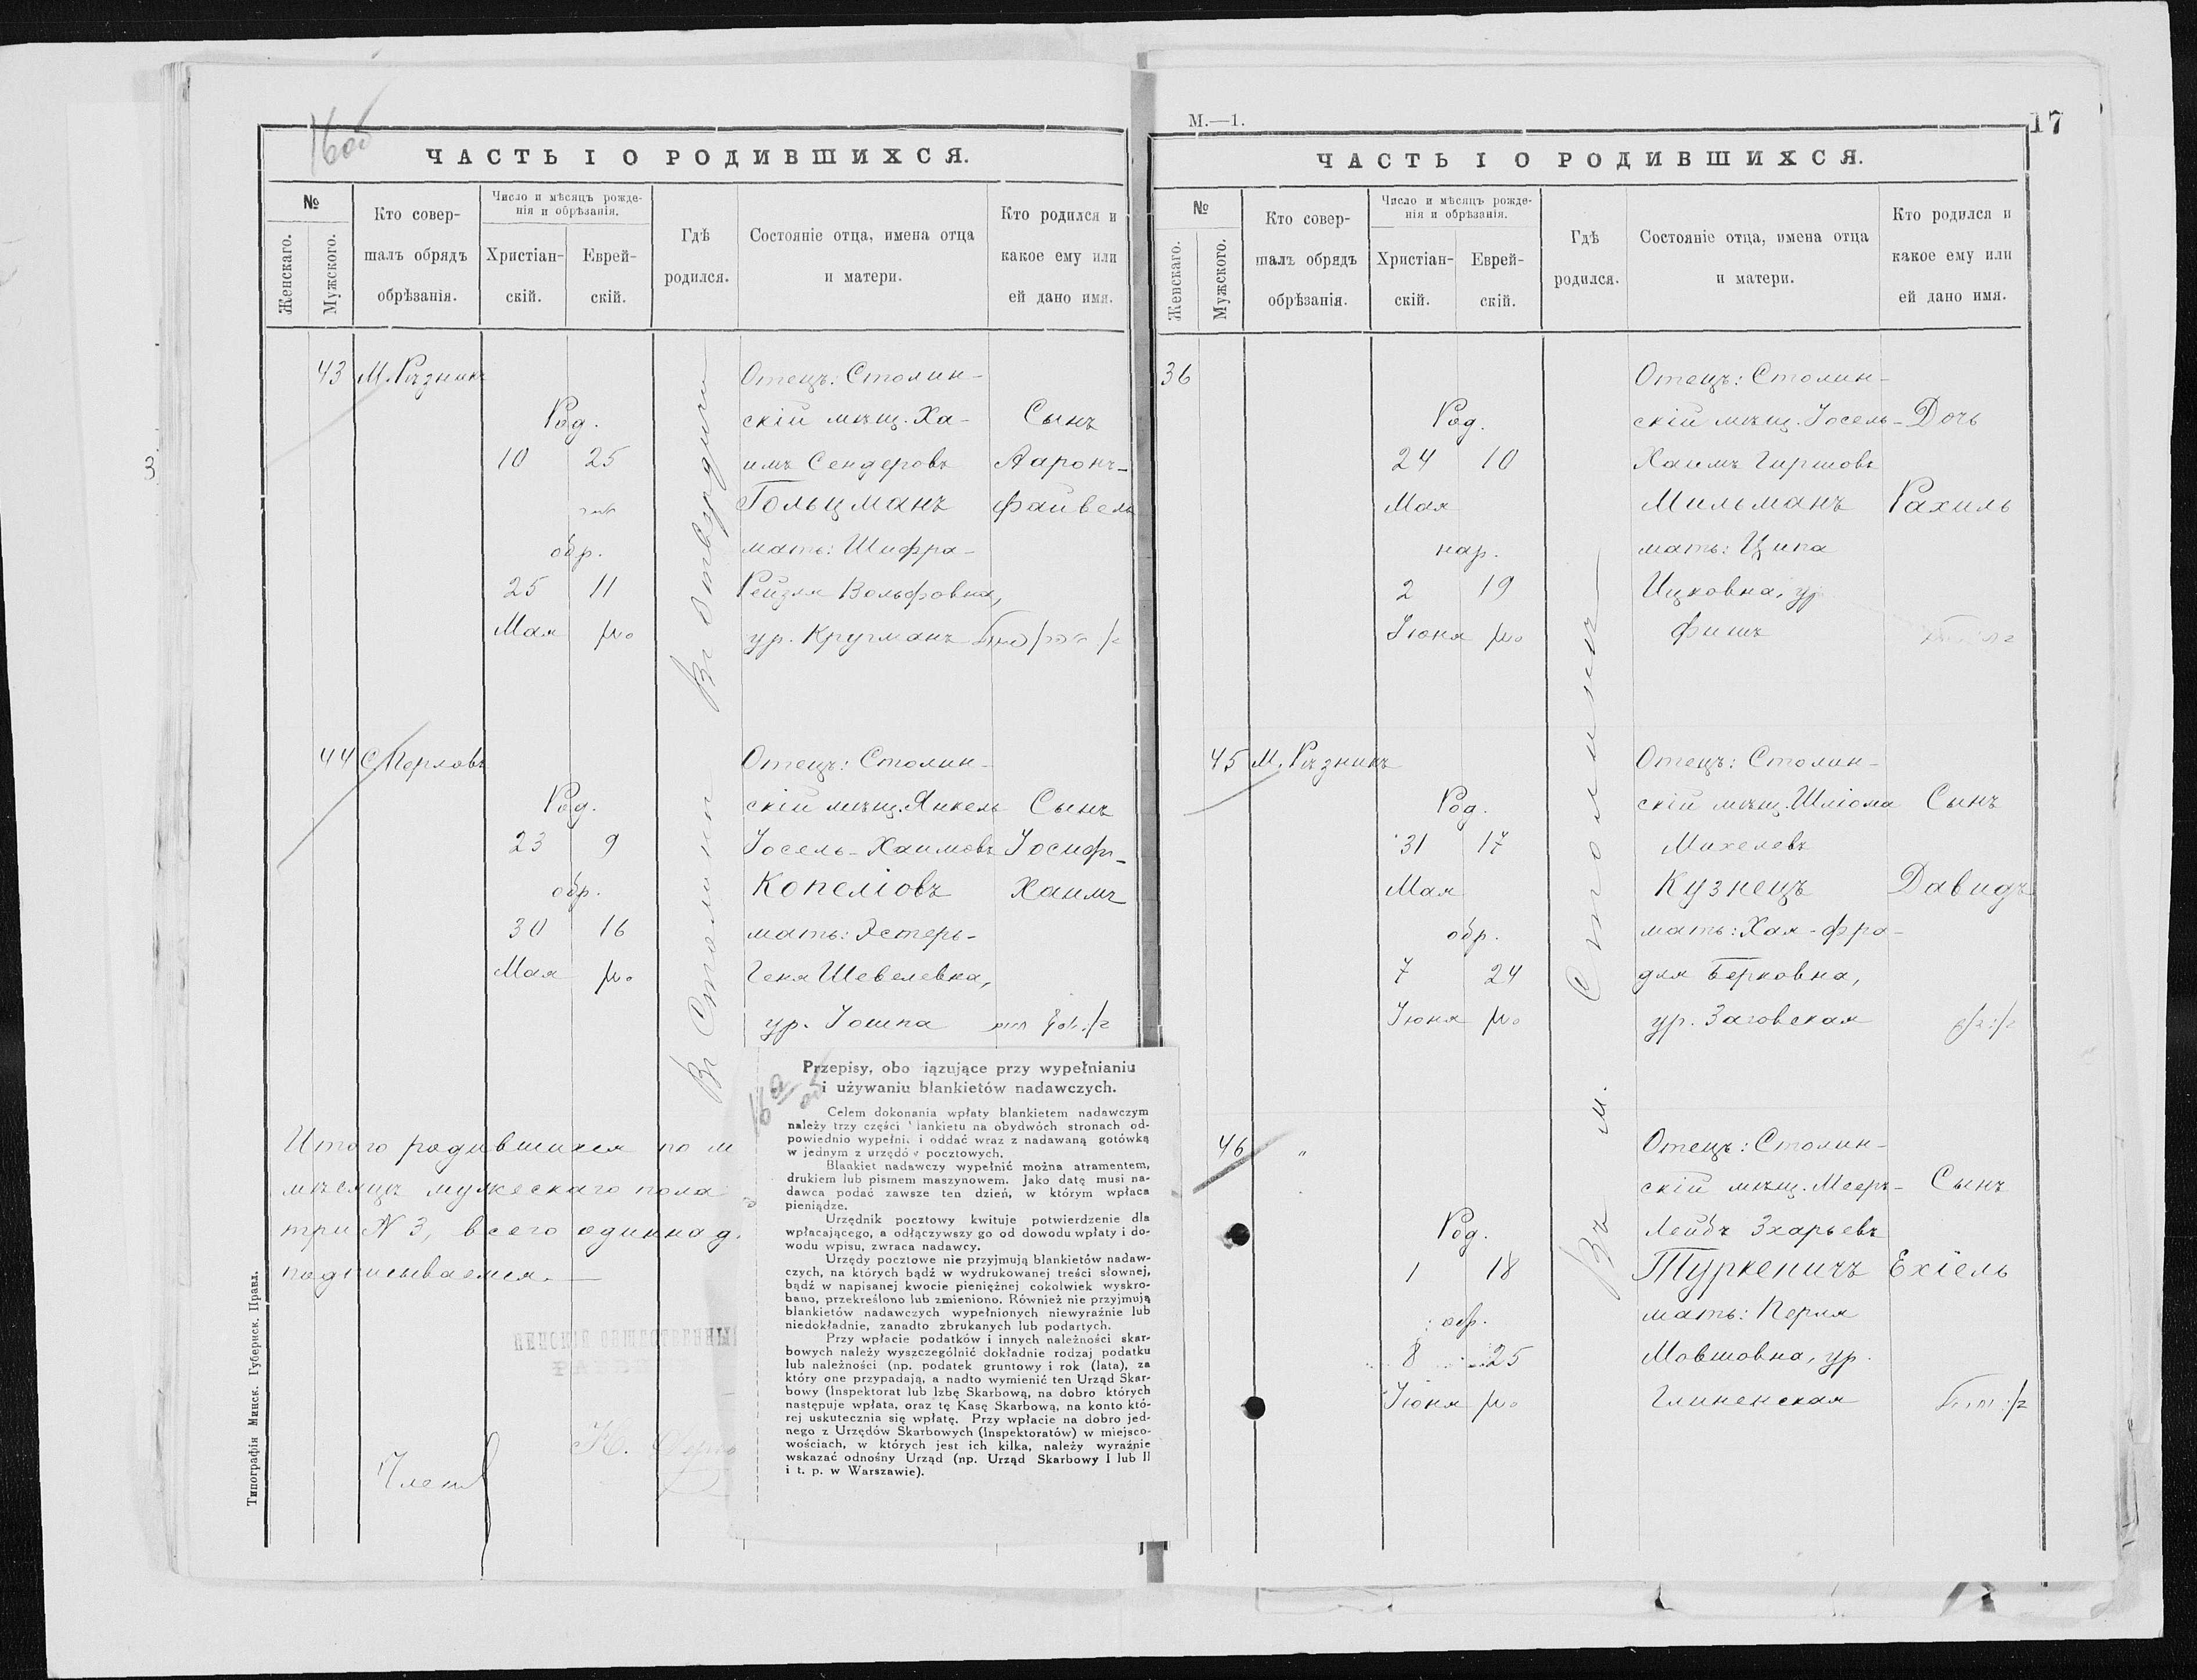 16 об
ЧАСТЬ I О РОДИВШИХСЯ.
№
Женскаго.
Мужского.
Кто совер-
шалъ обрядъ
обрѣзанія.
Число и мѣсяцъ рожде-
нія и обрѣзанія.
Христіан-
скій.
Еврей-
скій.
Гдѣ
родился.
Состояніе отца, имена отца
и матери.
Кто родился и
какое ему или
ей дано имя.
43 М. Рѣзникъ Отецъ: Столин-
Род. скій мѣщ. Ха- Сынъ
10 25 имъ Сендеровъ Ааронъ-
Гольцманъ Файвель
обр. мать: Шифра-
25 11 Рейзля Вольфовна,
Мая ур. Кругманъ
Въ Отвержичи
44 С. Перловъ Отецъ: Столин-
Род. скій мѣщ. Янкель Сынъ
23 9 Іосель-Хаимовъ Іосифъ-
обр. Копеліовъ Хаимъ
30 16 мать: Эстеръ-
Мая Геня Шевелевна,
ур. Іошпа
Въ Столинѣ
Итого родившихся по м
мѣсяцъ мужескаго пола
три N 3, всего одиннад
подписываемся.
ПИНСКІЙ ОБЩЕСТВЕННЫЙ
РАВВИНЪ
Членъ
Типографія Минск. Губернск. Правл.
16а об
Przepisy, obo iązujące przy wypełnianiu
i używaniu blankietów nadawczych.
Celem dokonania wpłaty blankietem nadawczym
należy trzy części lankietu na obydwóch stronach od-
powiednio wypełni i oddać wraz z nadawaną gotówką
w jednym z urzędó pocztowych.
Blankiet nadawczy wypełnić można atramentem,
drukiem lub pismem maszynowem. Jako datę musi na-
dawca podać zawsze ten dzień, w którym wpłaca
pieniądze.
Urzędnik pocztowy kwituje potwierdzenie dla
wpłacającego, a odłączywszy go od dowodu wpłaty i do-
wodu wpisu, zwraca nadawcy.
Urzędy pocztowe nie przyjmują blankietów nadaw-
czych, na których bądź w wydrukowanej treści słownej,
bądź w napisanej kwocie pieniężnej cokolwiek wyskro-
bano, przekreślono lub zmieniono. Również nie przyjmują
blankietów nadawczych wypełnionych niewyraźnie lub
niedokładnie, zanadto zbrukanych lub podartych.
Przy wpłacie podatków i innych należności skar-
bowych należy wyszczególnić dokładnie rodzaj podatku
lub należności (np. podatek gruntowy i rok (lata), za
który one przypadają, a nadto wymienić ten Urząd Skar-
bowy (Inspektorat lub Izbę Skarbową, na dobro których
następuje wpłata, oraz tę Kasę Skarbową, na konto któ-
rej uskutecznia się wpłatę. Przy wpłacie na dobro jed-
nego z Urzędów Skarbowych (Inspektoratów) w miejsco-
wościach, w których jest ich kilka, należy wyraźnie
wskazać odnośny Urząd (np. Urząd Skarbowy I lub II
i t. p. w Warszawie).
М.—1.
17
ЧАСТЬ I О РОДИВШИХСЯ.
№
Женскаго.
Мужского.
Кто совер-
шалъ обрядъ
обрѣзанія.
Число и мѣсяцъ рожде-
нія и обрѣзанія.
Христіан-
скій.
Еврей-
скій.
Гдѣ
родился.
Состояніе отца, имена отца
и матери.
Кто родился и
какое ему или
ей дано имя.
36 Отецъ: Столин-
Род. скій мѣщ. Іосель- Дочь
24 10 Хаимъ Гиршовъ
Мая Мильманъ Рахиль
нар. мать: Ципа
2 19 Ицковна, ур
Іюня Фишъ
45 М. Рѣзникъ Отецъ: Столин-
Род. скій мѣщ. Шліома Сынъ
31 17 Михелевъ
Мая Кузнецъ Давидъ
обр. мать: Хая-Фра-
7 24 для Берковна,
Іюня ур. Заговская
Въ м. Столинѣ
46 " Отецъ: Столин-
скій мѣщ. Мееръ- Сынъ
Род. Лейбъ Зхарьевъ
1 18 Туркеничъ Ехіель
обр. мать: Перля
8 25 Мовшовна, ур.
Іюня Глиненская